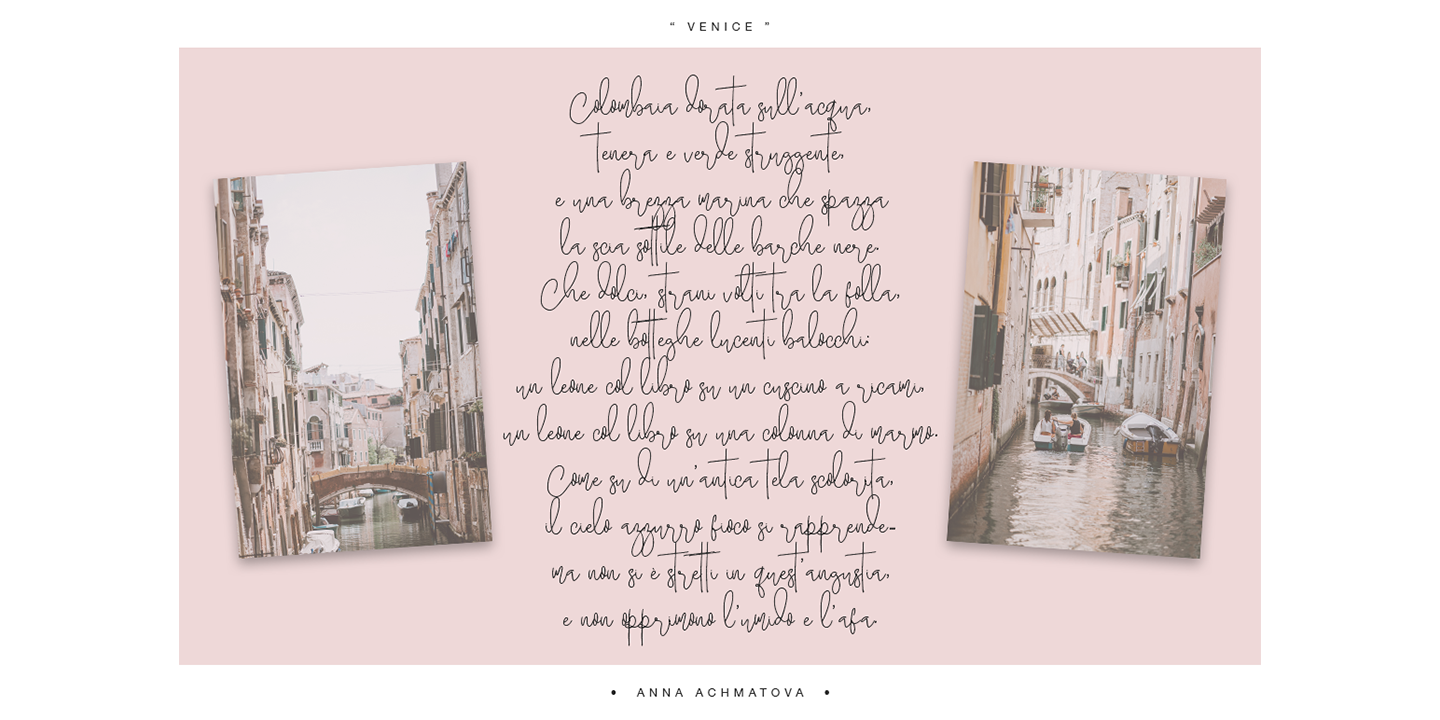 “ VENICE ”
Colombaia dorata sull'acqua,
tenera e verde struggente,
e una brezza marina che spazza
la scia sottile delle barche nere.
Che dolci, strani volti tra la folla,
nelle botteghe lucenti balocchi:
un leone col libro su un cuscino a ricami,
un leone col libro su una colonna di marmo.
Come su di un'antica tela scolorita,
il cielo azzurro fioco si rapprende-
ma non si è stretti in quest'angustia,
e non opprimono l'umido e l'afa.
• ANNA ACHMATOVA •